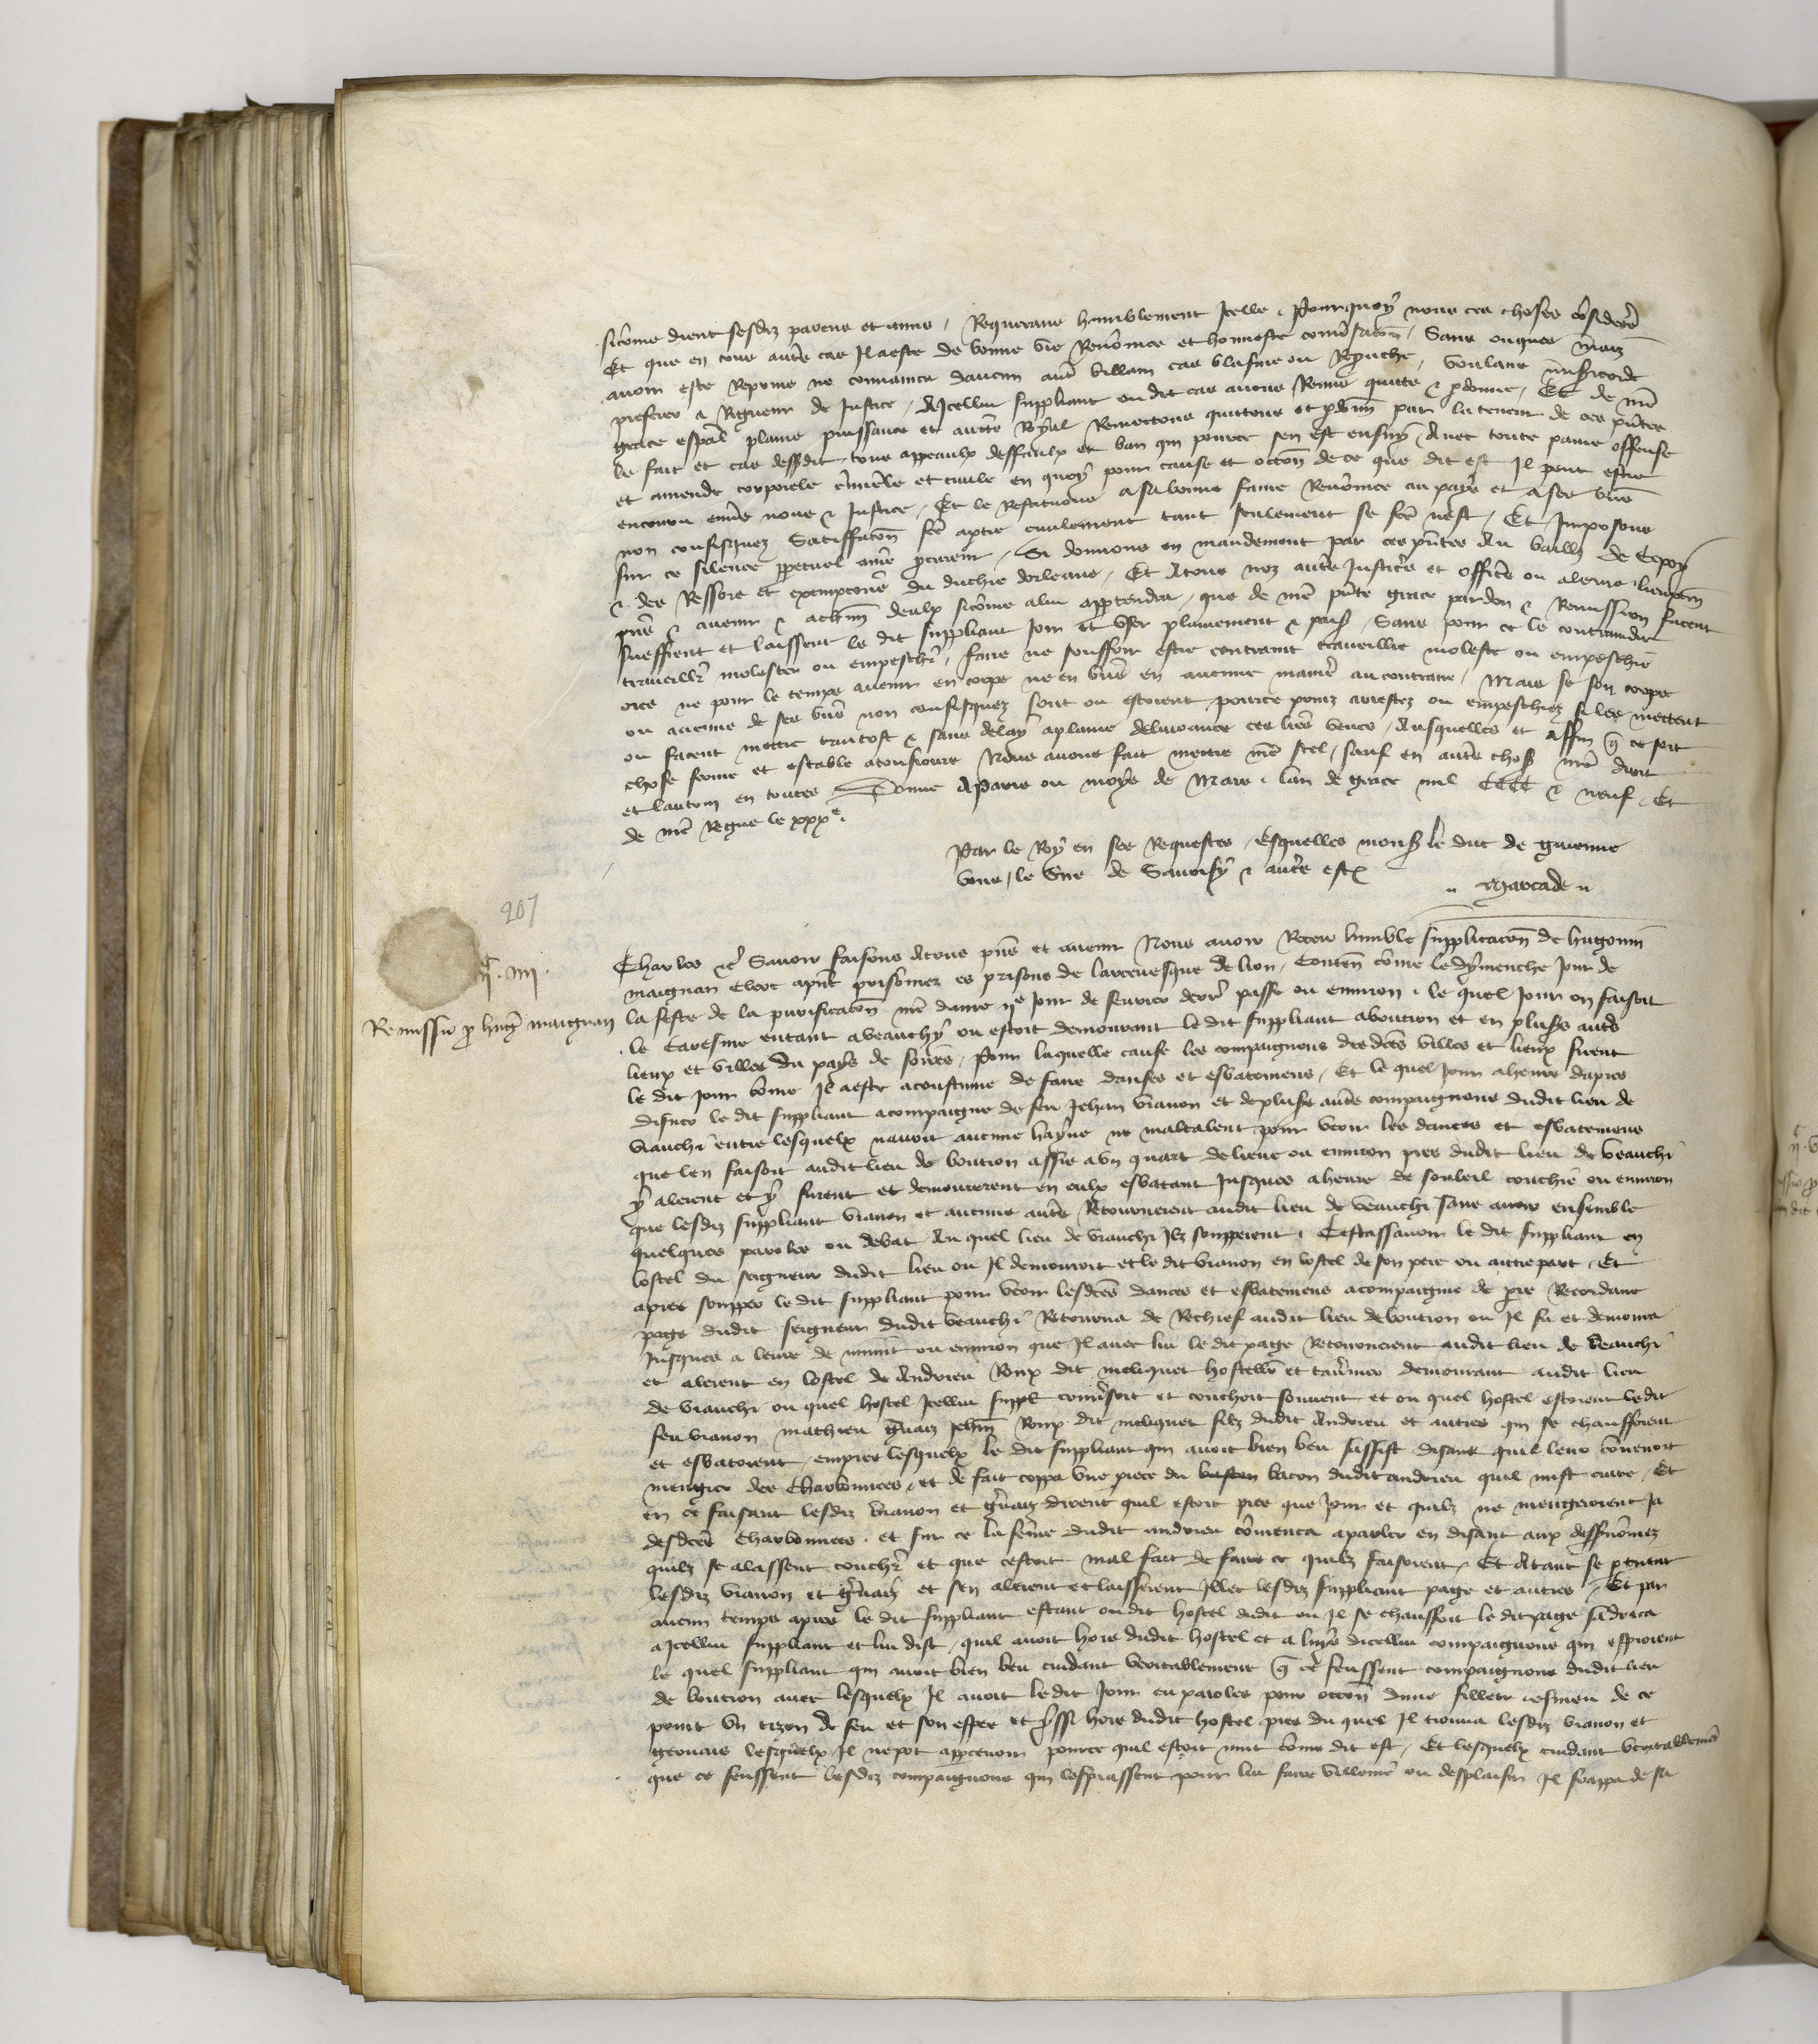 sicome dient sesdiz parens et amis / Requerans humblement Icelle / Pourquoy nous ces choses considerees
Et que en tous autres cas Il a este de bonne vie Renommee et honneste conversacion / Sans onques mais
avoir este Reprins ne convaincu daucun autre villain cas blasme ou Reprouche / voulans misericorde
preferer a Rigueur de Justice / A Icellui suppliant ou dit cas avons Remis quitte & pardonne / Et de nostre
grace especial plaine puissance et auctorite Royal Remectons quittons et pardonnons par la teneur de ces presentes
le fait et cas dessusdit tous appeaulx deffaulx et ban qui pource sen est ensuy Avec toute paine offense
et amende corporele criminele et civile en quoy pour cause et occasion de ce que dit est Il peut estre
encouru envers nous & Justice / Et le Restituons a sa bonne fame Renommee au pays et a ses biens
non confisquez Satisfaction faicte a partie civilement tant seulement se faicte nest / Et Imposons
sur ce silence perpetuel a nostre procureur / Si donnons en mandement par ces presentes Au bailly de Cepoy
& des Ressors et exempcions du duchie dorleans / Et A tous noz autres Justiciers et officiers ou a leurs lieuxtenans
presens & avenir & a chascun deulx sicome a lui appartendra / que de nostre presente grace pardon & Remission facent
sueffrent et laissent le dit suppliant Joir et user plainement & paisiblement Sans pour ce le contraindre
travaillier molester ou empeschier / faire ne souffrir estre contraint traveillie moleste ou empeschie
ores ne pour le temps avenir en corps ne en biens en aucune maniere au contraire / Mais se son corps
ou aucuns de ses biens non confisquez sont ou estoient pource prins arrestez ou empeschiez si les mettent
ou facent mettre tantost & sans delay a plaine delivrance ces lettres veues / Ausquelles et Affin que ce soit
chose ferme et estable a tousiours Nous avons fait mettre nostre seel / sauf en autres choses nostre droit
et lautrui en toutes Donne A Paris ou moys de Mars / lan de grace mil CCCC & neuf / Et
de nostre Regne le xxxe.
Par le Roy en ses Requestes / Esquelles monseigneur le duc de guienne
vous / le Sire de Savoisy & autres estoient
Marcade
207
Remissio pro hugonino maignan
Charles etc Savoir faisons A tous presens et avenir Nous avoir Receu humble supplicacion de hugonin
maignan clerc a present prisonnier es prisons de larcevesque de lion / Contenant come le dymenche Jour de
la feste de la purificacion nostre dame iie Jour de fevrier derrenier passe ou environ / le quel Jour on faisoit
le Caresme entant a veauchy ou estoit demourant le dit suppliant a boution et en plusieurs autres
lieux et villes du pays de forez / Pour laquelle cause les compaignons desdictes villes et lieux firent
le dit Jour come Il a este acoustume de faire danses et esbatemens / Et le quel Jour a heure dapres
disner le dit suppliant acompaigne de feu Jehan vianon et de plusieurs autres compaignons dudit lieu de
viauchi entre lesquelx navoit aucune hayne ne maltalent pour veoir les dances et esbatemens
que len faisoit audit lieu de boution assis a un quart de lieue ou environ pres dudit lieu de veauchi
y alerent et y furent et demourerent en eulx esbatant Jusques a heure de souleil couchie ou environ
que lesdiz suppliant vianon et aucuns autres Retournerent audit lieu de veauchi sans avoir ensemble
quelques paroles ou debat / Au quel lieu de viauchi Ilz soupperent / Cestassavoir le dit suppliant en
lostel du seigneur dudit lieu ou Il demouroit et le dit vianon en lostel de son pere ou autrepart / Et
apres soupper le dit suppliant pour veoir lesdictes dances et esbatemens acompaignie de pierre Recordant
page dudit seigneur dudit veauchi Retourna de Rechief audit lieu de boution ou Il fu et demoura
Jusques a leure de minuit ou environ que Il avec lui le dit page Retournerent audit lieu de veauchi
et alerent en lostel de Andrieu Roux dit meliquet hostellier et tavernier demourant audit lieu
de viauchi ou quel hostel Icellui suppliant conversoit et couchoit souvent et ou quel hostel estoient ledit
feu vianon mathieu gervaiz Jehan Roux dit meliquet filz dudit Andrieu et autres qui se chauffoient
et esbatoient / empres lesquelx le dit suppliant qui avoit bien beu sassist disant quil leur convenoit
mengier des Charbonnees / et de fait coppa une piece du baston bacon dudit andrieu quil mist cuire / Et
en ce faisant lesdiz vianon et gervaiz dirent quil estoit pres que Jour et quilz ne mengeroient Ja
desdictes Charbonnees / et sur ce la femme dudit andrieu commenca a parler en disant aux dessusnommez
quilz se alassent couchier et que cestoit mal fait de faire ce quilz faisoient / Et A tant se partirent
lesdiz vianon et gervaiz et sen alerent et laisserent Illec lesdiz suppliant page et autres / Et par
aucun temps apres le dit suppliant estant ou dit hostel dudit ou Il se chauffoit le dit page sadreca
a Icellui suppliant et lui dist / quil avoit hors dudit hostel et a luys dicellui compaignons qui espioient
le quel suppliant qui avoit bien beu cuidant veritablement que ce feussent compaignons dudit lieu
de boution avec lesquelx Il avoit le dit Jour eu paroles pour occasion dune fillete / esmeu de ce
print un tizon de feu et son espee et yssi hors dudit hostel pres du quel Il trouva lesdiz vianon et
gervais lesquelx Il ne pot appercevoir pource quil estoit nuit come dit est / Et lesquelx cuidant veritablement
que ce feussent lesdiz compaignons qui lespiassent pour lui faire villenie ou desplaisir Il frappa de sa